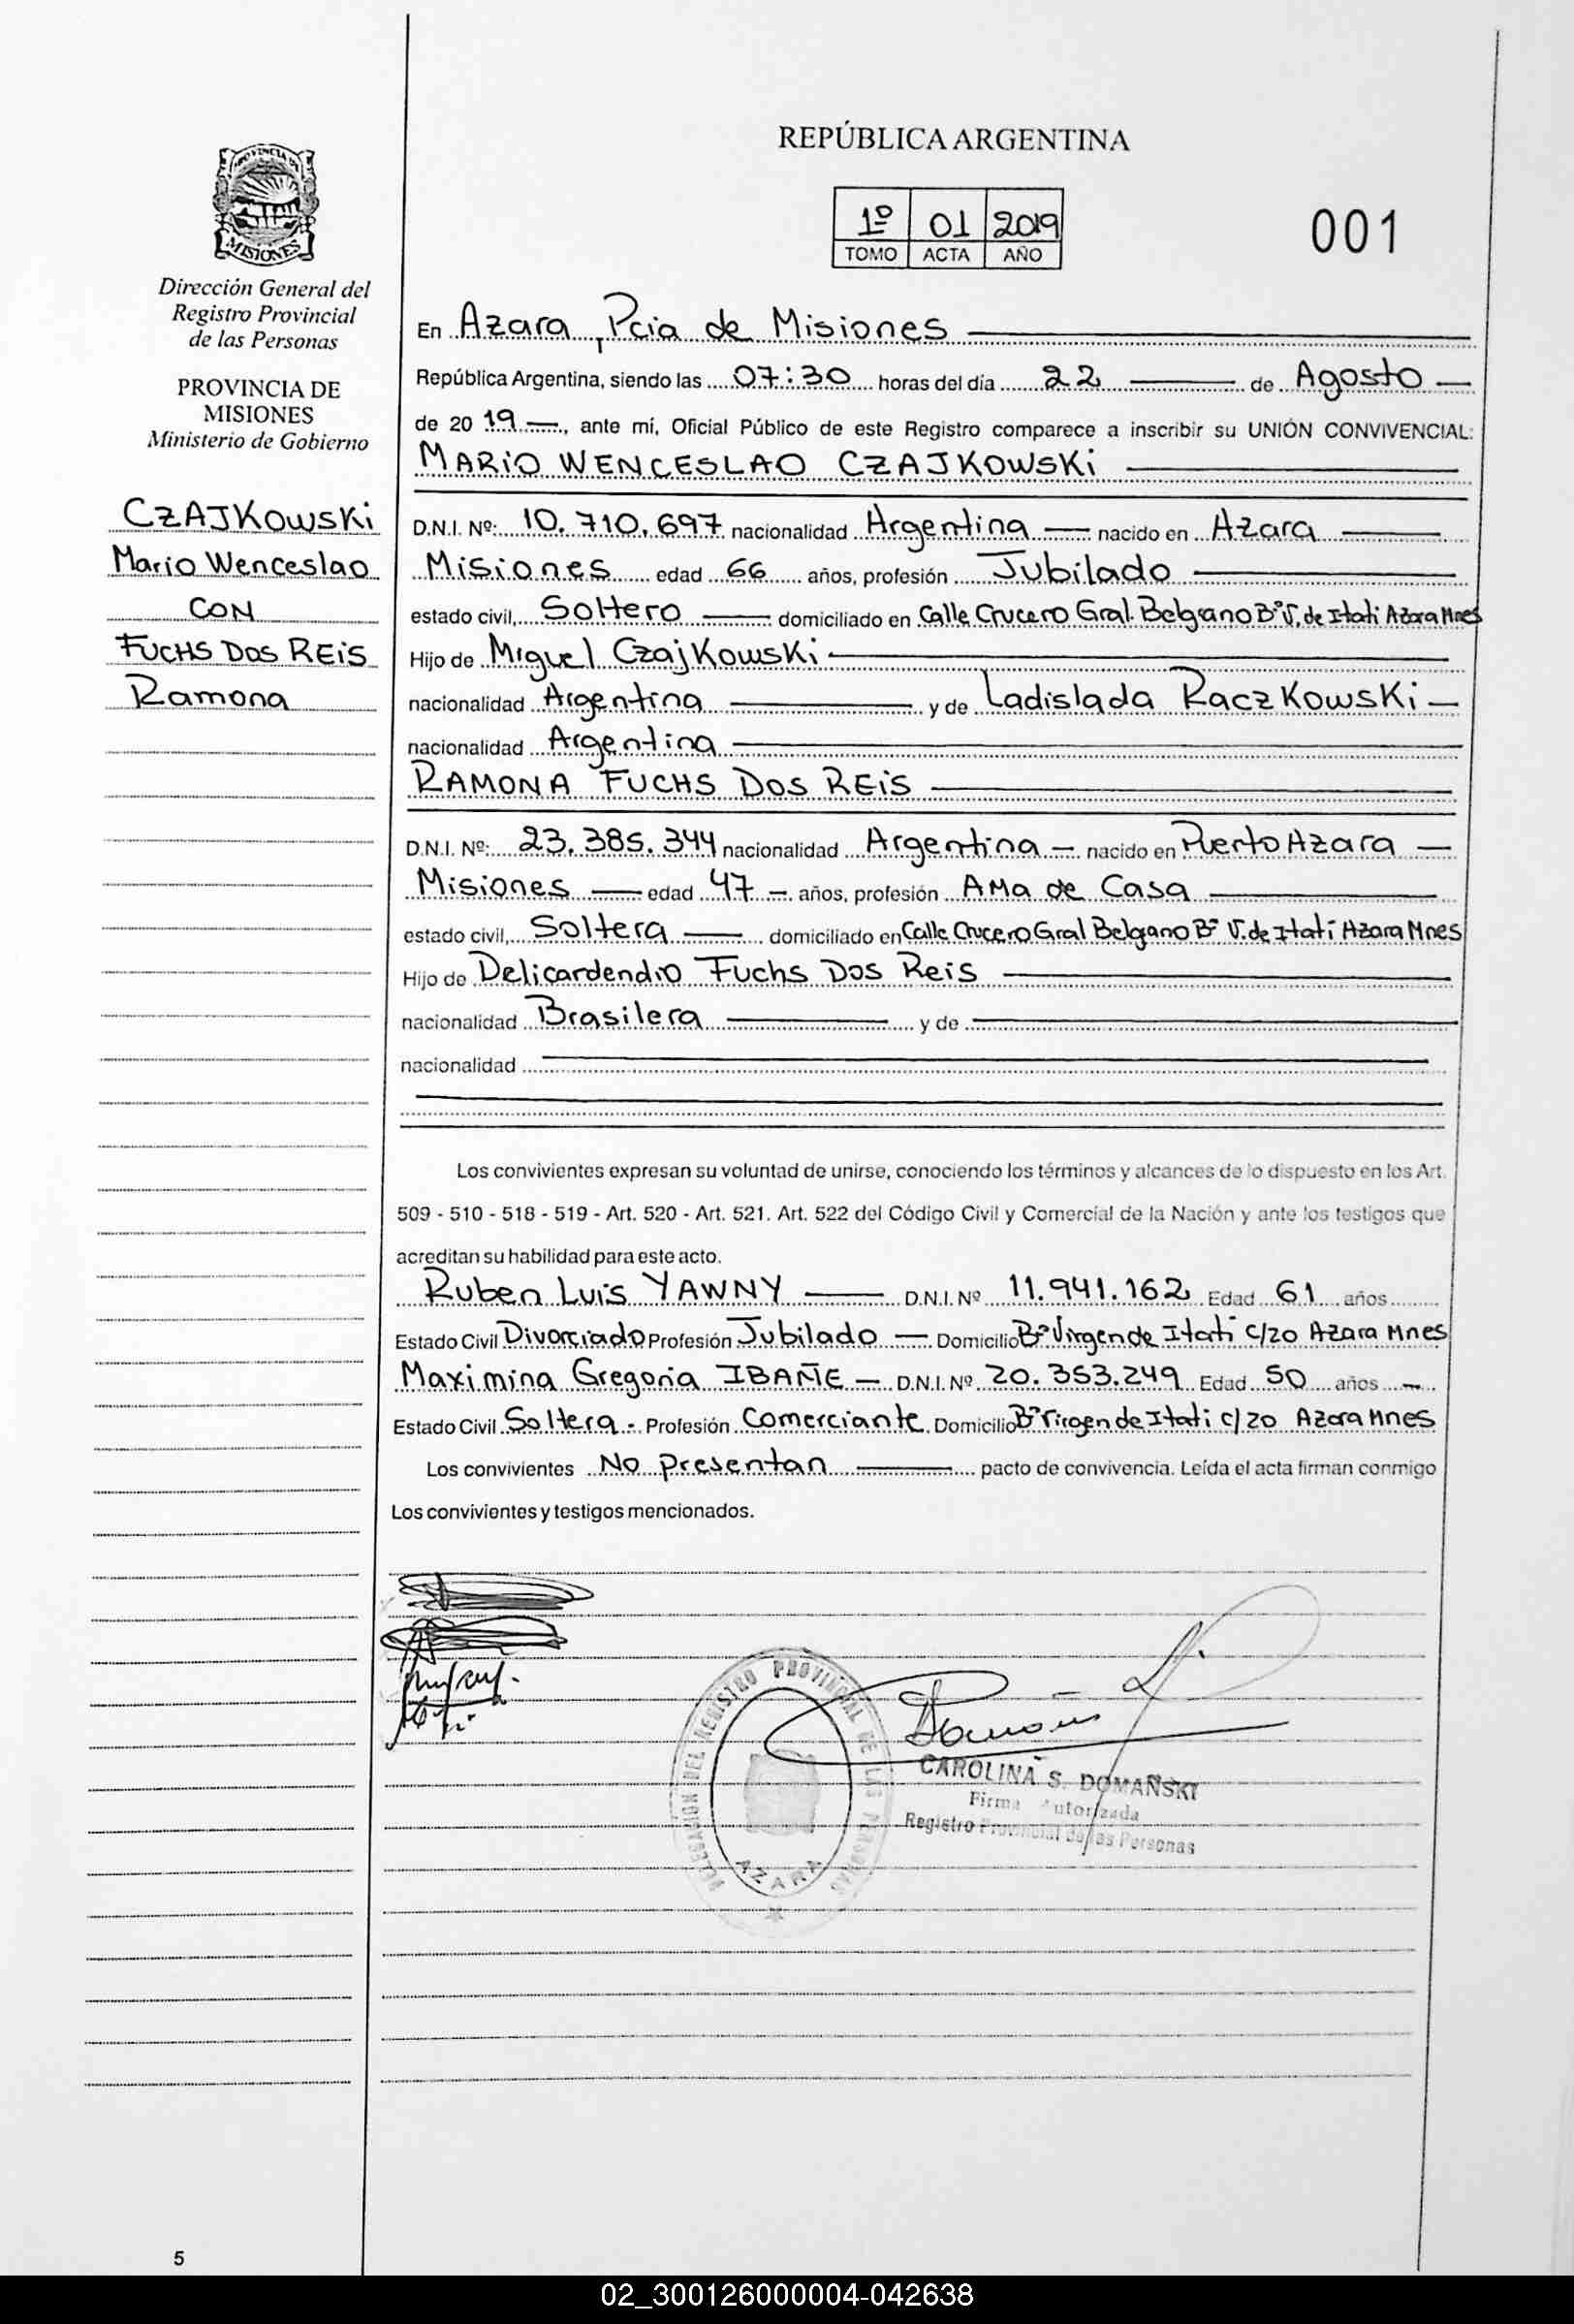 REPÚBLICA ARGENTINA
1º 01 2019
TOMO ACTA AÑO
001
PROVINCIA DE
MISIONES
Dirección General del
Registro Provincial
de las Personas
PROVINCIA DE
MISIONES
Ministerio de Gobierno
CZAJKOWSKi
Mario Wenceslao
CON
FUCHS DOS REiS
Ramona
En Azara, Pcia de Misiones
República Argentina, siendo las 07:30 horas del día 22 de Agosto
de 2019, ante mí, Oficial Público de este Registro comparece a inscribir su UNIÓN CONVIVENCIAL:
MARiO WENCESLAO CZAJKOWSKi
D.N.I. Nº: 10.710.697 nacionalidad Argentina nacido en Azara
Misiones edad 66 años, profesión Jubilado
estado civil, Soltero domiciliado en Calle Crucero Gral. Belgrano Bº V. de Itati Azara Mnes
Hijo de Miguel CzajKowski
nacionalidad Argentina y de Ladislada RaczKowsKi
nacionalidad Argentina
RAMONA FUCHS DOS REiS
D.N.I. Nº: 23.385.344 nacionalidad Argentina nacido en Puerto Azara
Misiones edad 47 años, profesión AMa de Casa
estado civil, Soltera domiciliado en Calle Crucero Gral Belgrano Bº V. de Itatí Azara Mnes
Hijo de Delicardendio Fuchs Dos Reis
nacionalidad Brasilera y de
nacionalidad
Los convivientes expresan su voluntad de unirse, conociendo los términos y alcances de lo dispuesto en los Art.
509 - 510 - 518 - 519 - Art. 520 - Art. 521. Art. 522 del Código Civil y Comercial de la Nación y ante los testigos que
acreditan su habilidad para este acto.
Ruben Luis YAWNY D.N.I. Nº 11.941.162 Edad 61 años
Estado Civil Divorciado Profesión Jubilado Domicilio Bº Virgen de Itatí C/20 Azara Mnes
Maximina Gregoria IBAÑE D.N.I. Nº 20.353.249 Edad 50 años
Estado Civil Soltera Profesión Comerciante Domicilio Bº Virogen de Itati c/20 Azara Mnes
Los convivientes No presentan pacto de convivencia. Leída el acta firman conmigo
Los convivientes y testigos mencionados.
DELEGACION DEL REGISTRO PROVINCIAL DE LAS PERSONAS
AZARA
CAROLINA S. DOMAÑSKI
Firma Autorizada
Registro Provincial de las Personas
5
02_300126000004-042638